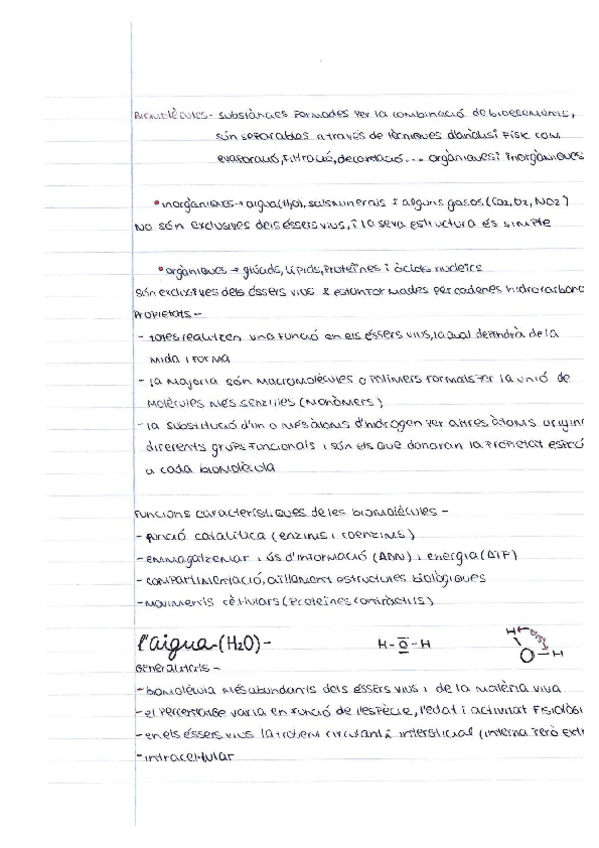 Biomolècules- substàncies formades per la combinació de bioelements,
són separables a través de tècniques d'anàlisi físic com
evaporació, filtració, decantació... orgàniques i inorgàniques
• inorgàniques → aigua (H2O), sals minerals i alguns gasos (CO2, O2, NO2)
NO són exclusives dels éssers vius, i la seva estructura és simple
• orgàniques → glúcids, lípids, proteïnes i àcids nucleics
són exclusives dels éssers vius i estan formades per cadenes hidrocarbona
Propietats -
- totes realitzen una funció en els éssers vius, la qual dependrà de la
mida i forma
- la majoria són macromolècules o polímers formats per la unió de
molècules més senzilles (monòmers)
- la substitució d'un o més àtoms d'hidrogen per altres àtoms origin
diferents grups funcionals i són els que donaran la propietat
a cada biomolècula
Funcions característiques de les biomolècules -
- funció catalítica (enzims i coenzims)
- emmagatzemar i ús d'informació (ADN) i energia (ATP)
- compartimentació, aïllament estructures biològiques
- moviments cèl·lulars (proteïnes contràctils)
l'aigua (H2O) - H-O-H H O-H
Generalitats -
- biomolècula més abundants dels éssers vius i de la matèria viva
- el percentatge varia en funció de l'espècie, l'edat i activitat fisiològi
- en els éssers vius la trobem circulant i intersticial (interna però extr
- intracel·lular